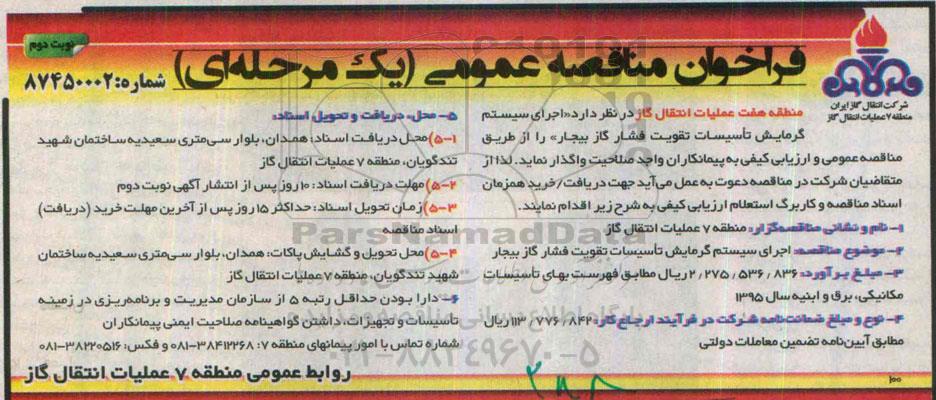 نوبت دوم
فراخوان مناقصه عمومی (یک مرحله‌ای) شماره: ۸۷۴۵۰۰۰۲
شرکت انتقال گاز ایران
منطقه ۷ عملیات انتقال گاز
منطقه هفت عملیات انتقال گاز در نظر دارد «اجرای سیستم
گرمایش تأسیسات تقویت فشار گاز بیجار» را از طریق
مناقصه عمومی و ارزیابی کیفی به پیمانکاران واجد صلاحیت واگذار نماید. لذا از
متقاضیان شرکت در مناقصه دعوت به عمل می‌آید جهت دریافت/خرید همزمان
اسناد مناقصه و کاربرگ استعلام ارزیابی کیفی به شرح زیر اقدام نمایند.
۱- نام و نشانی مناقصه‌گزار: منطقه ۷ عملیات انتقال گاز
۲- موضوع مناقصه: اجرای سیستم گرمایش تأسیسات تقویت فشار گاز بیجار
۳- مبلغ برآورد: ۲/۲۷۵/۵۳۶/۸۳۶ ریال مطابق فهرست بهای تأسیسات
مکانیکی، برق و ابنیه سال ۱۳۹۵
۴- نوع و مبلغ ضمانت‌نامه شرکت در فرآیند ارجاع کار: ۱۱۳/۷۷۶/۸۴۲ ریال
مطابق آیین‌نامه تضمین معاملات دولتی
۵- محل، دریافت و تحویل اسناد:
۵-۱) محل دریافت اسناد: همدان، بلوار سی‌متری سعیدیه ساختمان شهید
تندگویان، منطقه ۷ عملیات انتقال گاز
۵-۲) مهلت دریافت اسناد: ۱۰ روز پس از انتشار آگهی نوبت دوم
۵-۳) زمان تحویل اسناد: حداکثر ۱۵ روز پس از آخرین مهلت خرید (دریافت)
اسناد مناقصه
۵-۴) محل تحویل و گشایش پاکات: همدان، بلوار سی‌متری سعیدیه ساختمان
شهید تندگویان، منطقه ۷ عملیات انتقال گاز
۶- دارا بودن حداقل رتبه ۵ از سازمان مدیریت و برنامه‌ریزی در زمینه
تأسیسات و تجهیزات، داشتن گواهینامه صلاحیت ایمنی پیمانکاران
شماره تماس با امور پیمانهای منطقه ۷: ۳۸۴۱۲۲۶۸-۰۸۱ و فکس: ۳۸۲۲۰۵۱۶-۰۸۱
روابط عمومی منطقه ۷ عملیات انتقال گاز
۱۰۰
ParsNamadData
۰۲۱-۸۸۳۴۹۶۷۰-۵